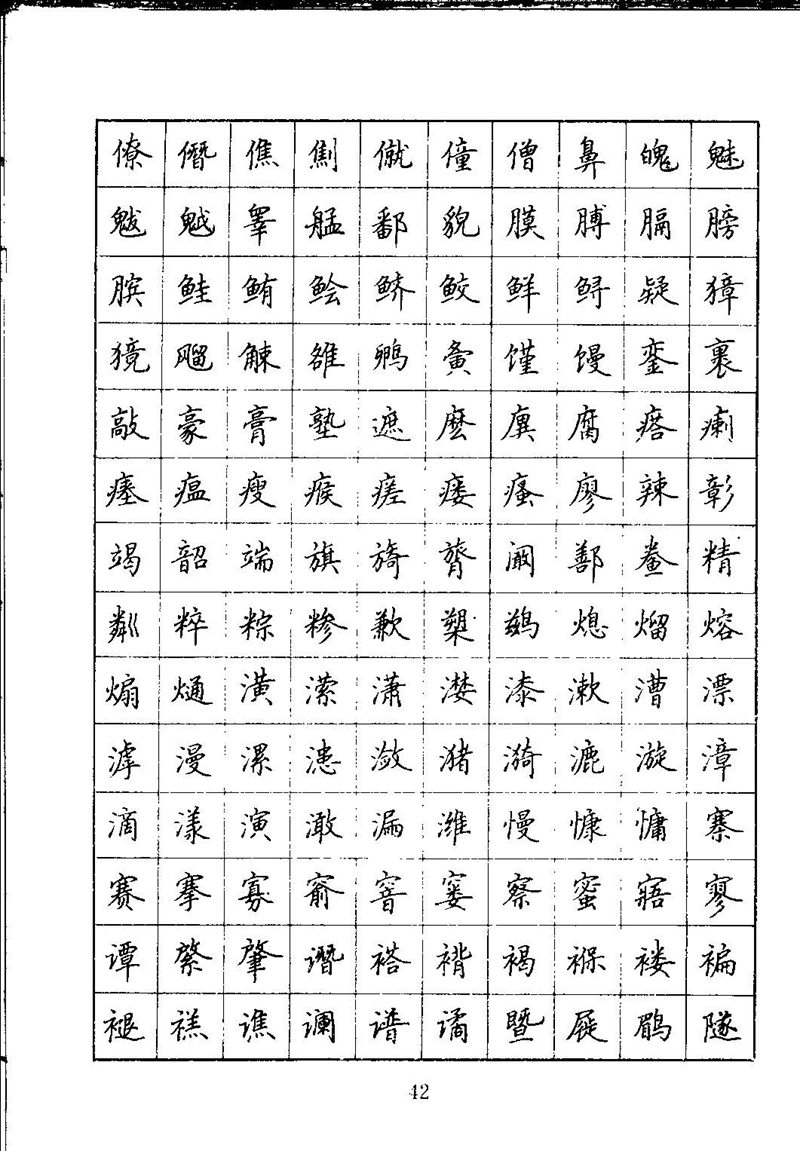 僚 僭 僬 劁 僦 僮 僧 鼻 魄 魅
魃 魆 睾 艋 鄱 貌 膜 膊 膈 膀
膑 鲑 鲔 鲙 鲚 鲛 鲜 鲟 疑 獐
獍 飗 觫 雒 鹏 夤 馑 馒 銮 裹
敲 豪 膏 塾 遮 麽 廙 腐 瘩 瘌
瘗 瘟 瘦 瘊 瘥 瘘 瘙 廖 辣 彰
竭 韶 端 旗 旖 膂 阚 鄯 鲞 精
粼 粹 粽 糁 歉 槊 鹚 熄 熘 熔
煽 熥 潢 潆 潇 漤 漆 漱 漕 漂
滹 漫 漯 漶 潋 潴 漪 漉 漩 漳
滴 漾 演 澉 漏 潍 慢 慷 慵 寨
赛 搴 寡 窬 窨 窭 察 蜜 寤 寥
谭 綮 肇 谮 褡 褙 褐 褓 褛 褊
褪 禚 谯 谰 谱 谲 暨 屣 鹛 隧
42